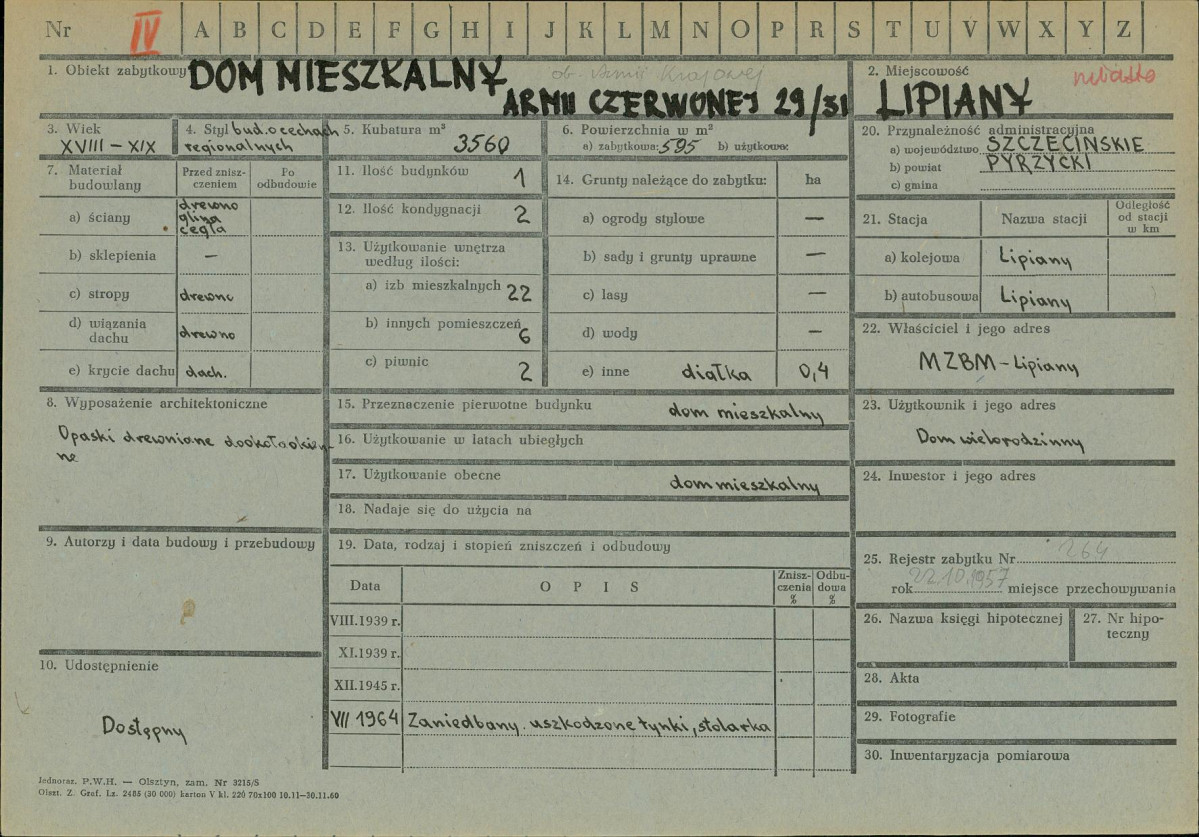 Nr IV A B C D E F G H I J K L M N O P R S T U V W X Y Z
1. Obiekt zabytkowy DOM MIESZKALNY ob. Armii Krajowej
ARMII CZERWONEJ 29/31
2. Miejscowość
LIPIANY
3. Wiek
XVIII – XIX
4. Styl bud. o cechach
regionalnych
5. Kubatura m³
3560
6. Powierzchnia w m²
a) zabytkowa: 595 b) użytkowa:
20. Przynależność administracyjna
a) województwo SZCZECIŃSKIE
b) powiat PYRZYCKI
c) gmina
7. Materiał
budowlany
Przed znisz-
czeniem
Po
odbudowie
a) ściany
drewno
glina
cegła
b) sklepienia —
c) stropy drewno
d) wiązania
dachu drewno
e) krycie dachu dach.
11. Ilość budynków 1
12. Ilość kondygnacji 2
13. Użytkowanie wnętrza
według ilości:
a) izb mieszkalnych 22
b) innych pomieszczeń 6
c) piwnic 2
14. Grunty należące do zabytku: ha
a) ogrody stylowe —
b) sady i grunty uprawne —
c) lasy —
d) wody —
e) inne działka 0,4
21. Stacja Nazwa stacji
Odległość
od stacji
w km
a) kolejowa Lipiany
b) autobusowa Lipiany
22. Właściciel i jego adres
MZBM – Lipiany
8. Wyposażenie architektoniczne
Opaski drewniane dookoła okien-
ne
15. Przeznaczenie pierwotne budynku dom mieszkalny
16. Użytkowanie w latach ubiegłych
17. Użytkowanie obecne dom mieszkalny
18. Nadaje się do użycia na
23. Użytkownik i jego adres
Dom wielorodzinny
24. Inwestor i jego adres
9. Autorzy i data budowy i przebudowy
19. Data, rodzaj i stopień zniszczeń i odbudowy
Data O P I S
Znisz-
czenia
%
Odbu-
dowa
%
VIII.1939 r.
XI.1939 r.
XII.1945 r.
VII 1964 Zaniedbany. uszkodzone tynki, stolarka
25. Rejestr zabytku Nr 264
rok 22.10.1957 miejsce przechowywania
26. Nazwa księgi hipotecznej
27. Nr hipo-
teczny
28. Akta
29. Fotografie
30. Inwentaryzacja pomiarowa
10. Udostępnienie
Dostępny
Jednoraz. P.W.H. — Olsztyn, zam. Nr 3215/S
Olszt. Z. Graf. Lz. 2485 (30 000) karton V kl. 220 70x100 10.11—30.11.60